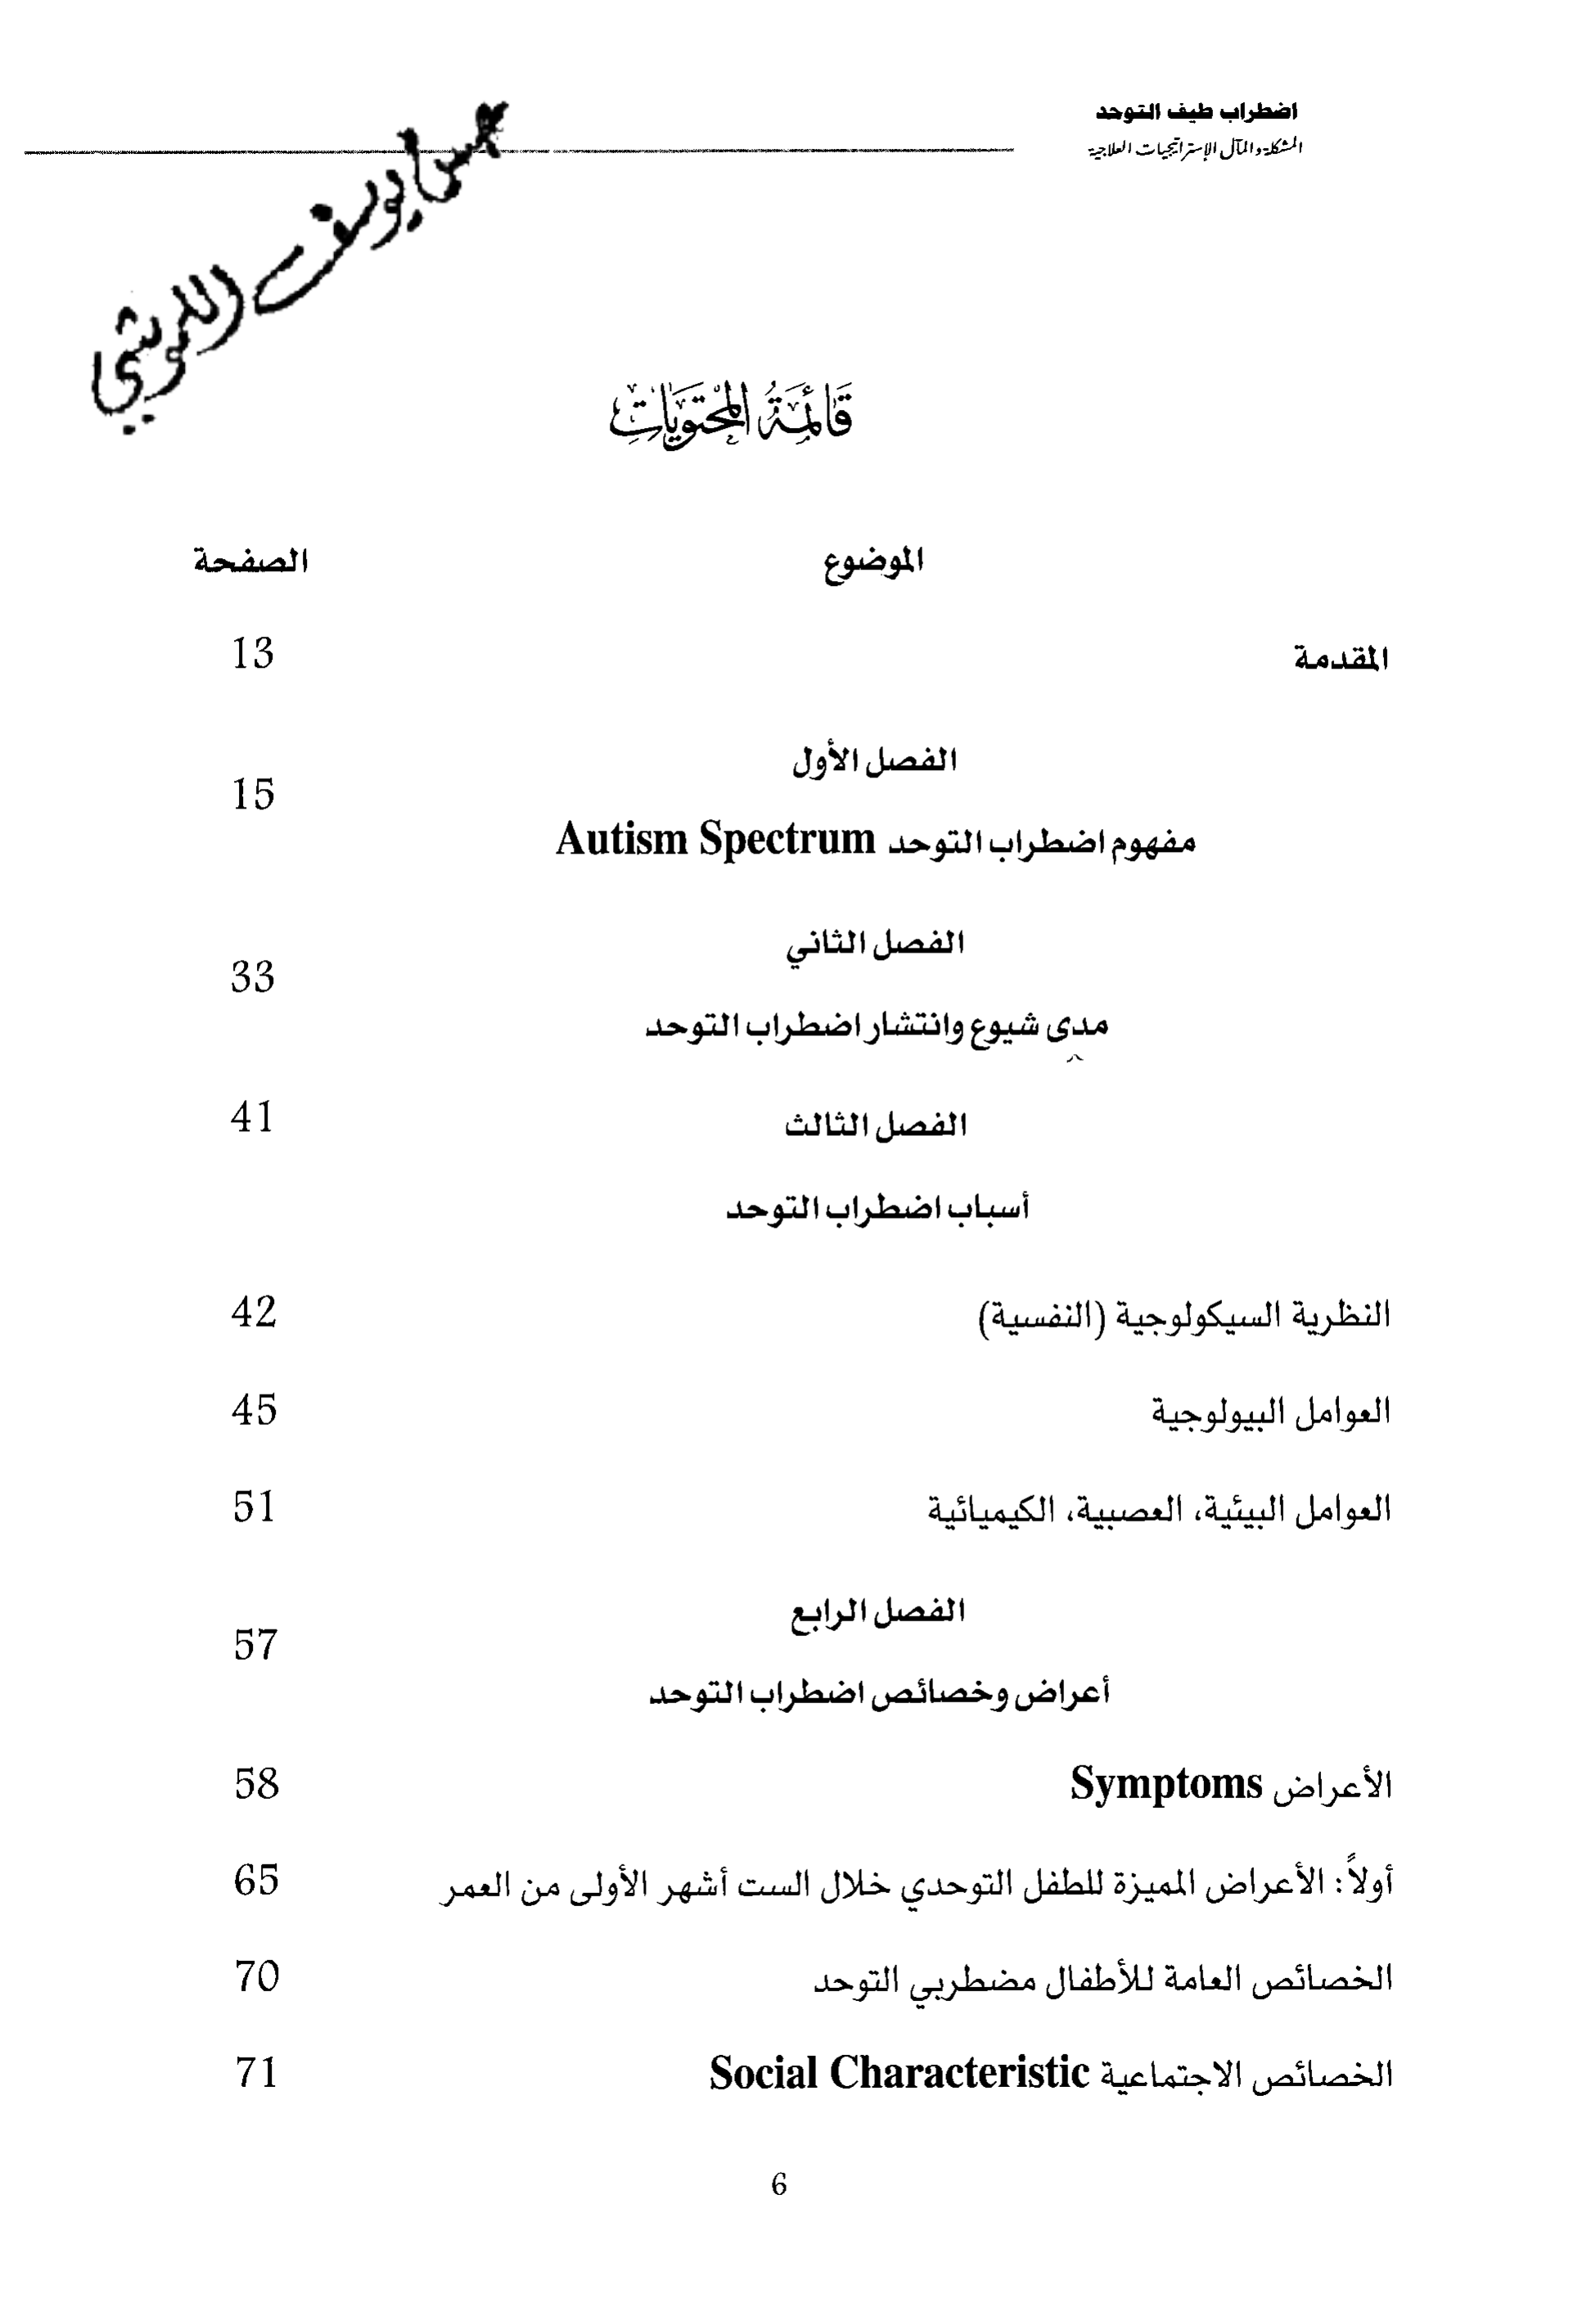 اضطراب طيف التوحد
المشكلة والمآل الإستراتيجيات العلاجية
يوسف
قَائِمَةُ المُحْتَوَيَاتِ
الموضوع الصفحة
المقدمة 13
الفصل الأول
15
مفهوم اضطراب التوحد Autism Spectrum
الفصل الثاني
33
مدى شيوع وانتشار اضطراب التوحد
الفصل الثالث 41
أسباب اضطراب التوحد
النظرية السيكولوجية (النفسية) 42
العوامل البيولوجية 45
العوامل البيئية، العصبية، الكيميائية 51
الفصل الرابع
57
أعراض وخصائص اضطراب التوحد
الأعراض Symptoms 58
أولاً: الأعراض المميزة للطفل التوحدي خلال الست أشهر الأولى من العمر 65
الخصائص العامة للأطفال مضطربي التوحد 70
الخصائص الاجتماعية Social Characteristic 71
6